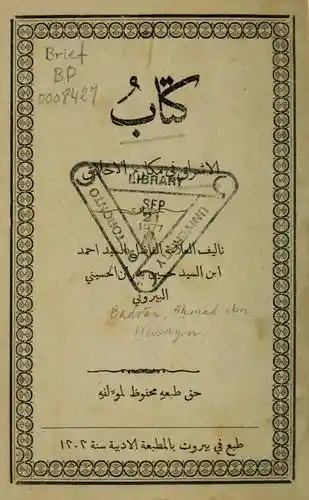 Brief
BP
0008427
كتابُ
الاشراق في مكارم الاخلاق
LIBRARY
SEP
21
1977
UNIVERSITY
TORONTO
تاليف العلامة الفاضل السيد احمد
ابن السيد حسين بدران الحسيني
البيروتي
Badrān, Ahmad ibn
Husayn
حق طبعه محفوظ لموءلفه
طبع في بيروت بالمطبعة الادبية سنة ١٣٠٢